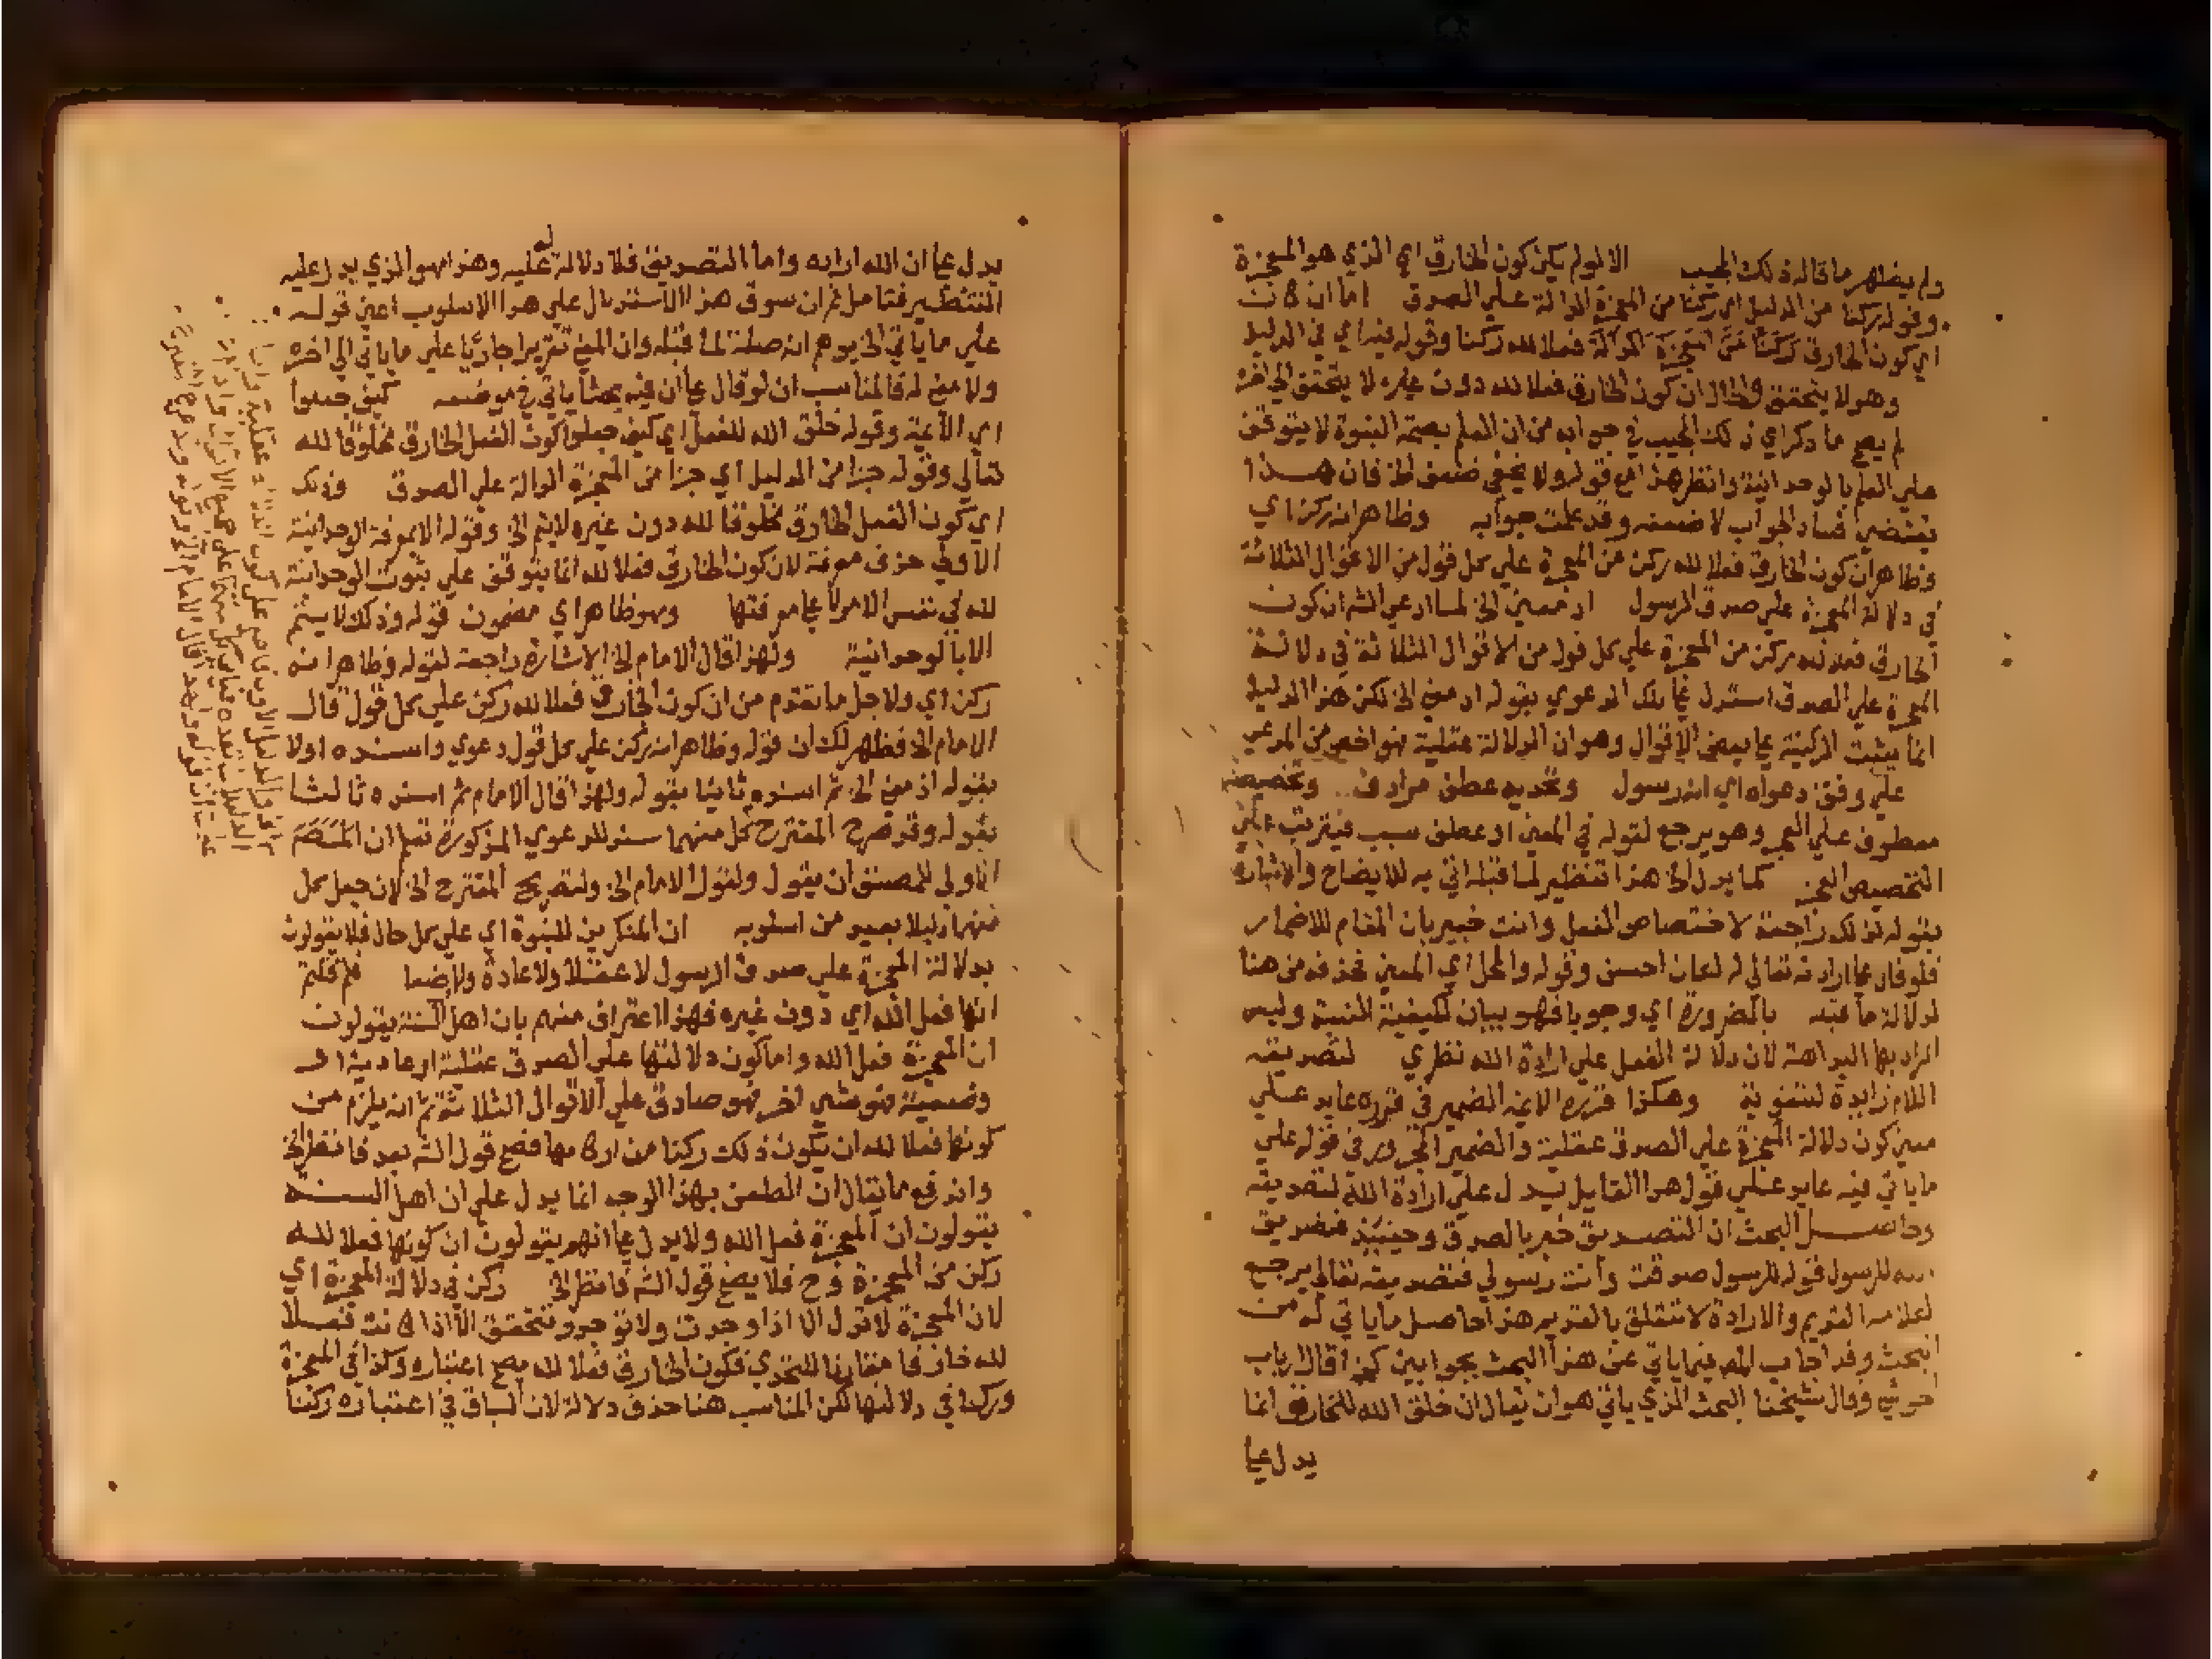 ولم يظهر ما قاله ذلك المجيب الا لو لم يكن كون الخارق اي الذي هو المعجزة
وقوله ركنا من الدليل اي ركنا من المعجزة الدالة على الصدق اما ان كانت
اي كون الخارق ركنا من المعجزة الدالة فعلا لله ركنا وقوله فيه اي في الدليل
وهو لا يتحقق والحال ان كون الخارق فعلا لله دون غيره لا يتحقق الى اخره
لم يصح ما ذكر اي ذلك المجيب في جوابه من ان العلم بصحة النبوة لا يتوقف
على العلم بالوحدانية وانظر هذا مع قوله ولا يخفى ضعف الخ فان هذا
يقتضي فساد الجواب لا ضعفه وقد علمت جوابه وظاهر انه ركن اي
وظاهر ان كون الخارق فعلا لله ركن من المعجزة على كل قول من الاقوال الثلاثة
في دلالة المعجزة على صدق الرسول اذ معنى الخ لما ادعى الشه ان كون
الخارق فعلا لله ركن من المعجزة على كل قول من الاقوال الثلاثة في دلالة
المعجزة على الصدق استدل على تلك الدعوي بقوله اذ معنى الخ لكن هذا الدليل
انما يثبت الركنية على بعض الاقوال وهو ان الدلالة عقلية فهو اخص من المدعي
على وفق دعواه اي انه رسول وتحديه عطف مرادف وتخصيصه
معطوف على وهو يرجع لقوله في المعنى او عطف سبب فيترتب على
التخصيص العجز كما يدل الخ هذا تنظير لما قبله اتي به للايضاح والاشارة
بقوله لذلك راجعة لاختصاص الفعل وانت خبير بان المقام للاضمار
فلو قال على ارادته تعالى له لكان احسن وقوله والمحل اي المعين فحذفه من هنا
لدلالة ما قبله بالضرورة اي وجوبا فهو بيان لكيفية النسبة وليس
المراد بها البداهة لان دلالة الفعل على ارادة الله نظري لتصديقه
اللام زايدة للتقوية وهكذا قرره الايمة الضمير في قرره عايد على
معنى كون دلالة المعجزة على الصدق عقلية والضمير المجرور في قوله على
ما ياتي فيه عايد على قول هذا القايل يدل على ارادة الله لتصديقه
وحاصل البحث ان التصديق خبر بالصدق وحينيذ فتصديق
الله للرسول قوله للرسول صدقت وانت رسولي فتصديقه تعالى يرجع
لكلامه القديم والارادة لا تتعلق بالقديم هذا حاصل ما ياتي له من
البحث وقد اجاب المص فيما ياتي عن هذا البحث بجوابين كذا قال ارباب
الحوشي وقال شيخنا البحث الذي ياتي هو ان يقال ان خلق الله للخارق انما
يدل على
يدل على ان الله اراده واما التصديق فلا دلالة له عليه وهذا هو الذي يدل عليه
التنظير فتامل ثم ان سوق هذا الاستدلال على هذا الاسلوب اعني قوله
على ما ياتي الخ يوهم انه صلة لما قبله وان المعنى تقريرا جاريا على ما ياتي الى اخره
ولا معنى له فالمناسب ان لو قال على ان فيه بحثا ياتي في موضعه كيف جعلوا
اي الايمة وقوله خلق الله للفعل اي كيف جعلوا كون الفعل الخارق مخلوقا لله
تعالى وقوله جزا من الدليل اي جزا من المعجزة الدالة على الصدق وذلك
اي كون الفعل الخارق مخلوقا لله دون غيره لا يتم الخ وقوله الا بمعرفة الوحدانية
الاولى حذف معرفة لان كون الخارق فعلا لله انما يتوقف على ثبوت الوحدانية
لله في نفس الامر لا على معرفتها وهو ظاهر اي مضمون قوله وذلك لا يتم
الا بالوحدانية ولهذا قال الامام الخ الاشارة راجعة لقوله وظاهر انه
ركن اي ولاجل ما تقدم من ان كون الخارق فعلا لله ركن على كل قول قال
الامام الخ فظهر لك ان قوله وظاهر انه ركن على كل قول دعوي واسنده اولا
بقوله اذ معنى الخ ثم اسنده ثانيا بقوله ولهذا قال الامام ثم اسنده ثالثا
بقوله وقد صرح المقترح فكل منهما سند للدعوي المذكورة تعلم ان
الاولى للمصنف ان يقول ولقول الامام الخ ولتصريح المقترح الخ لان جعل كل
منهما دليلا بعيد من اسلوبه ان المنكرين للنبوة اي على كل حال فلا يقولون
بدلالة المعجزة على صدق الرسول لا عقلا ولا عادة ولا وضعا فلم قلتم
انها فعل الله اي دون غيره فهذا اعتراف منهم بان اهل السنة يقولون
ان المعجزة فعل الله واما كون دلالتها على الصدق عقلية او عادية او
وضعية فهو شي اخر فهو صادق على الاقوال الثلاثة ثم انه يلزم من
كونها فعلا لله ان يكون ذلك ركنا من اركانها فصح قول الشه بعد فانظر الخ
واندفع ما يقال ان الطعن بهذا الوجه انما يدل على ان اهل السنة
يقولون ان المعجزة فعل الله ولا يدل على انهم يقولون ان كونها فعلا لله
ركن من المعجزة وح فلا يصح قول الشه فانظر الخ ركن في دلالة المعجزة اي
لان المعجزة لا تدل الا اذا وجدت ولا توجد وتتحقق الا اذا كانت فعلا
لله خارقا مقارنا للتحدي فكون الخارق فعلا لله يصح اعتباره ركنا في المعجزة
وركنا في دلالتها لكن المناسب هنا حذف دلالة لان السياق في اعتباره ركنا